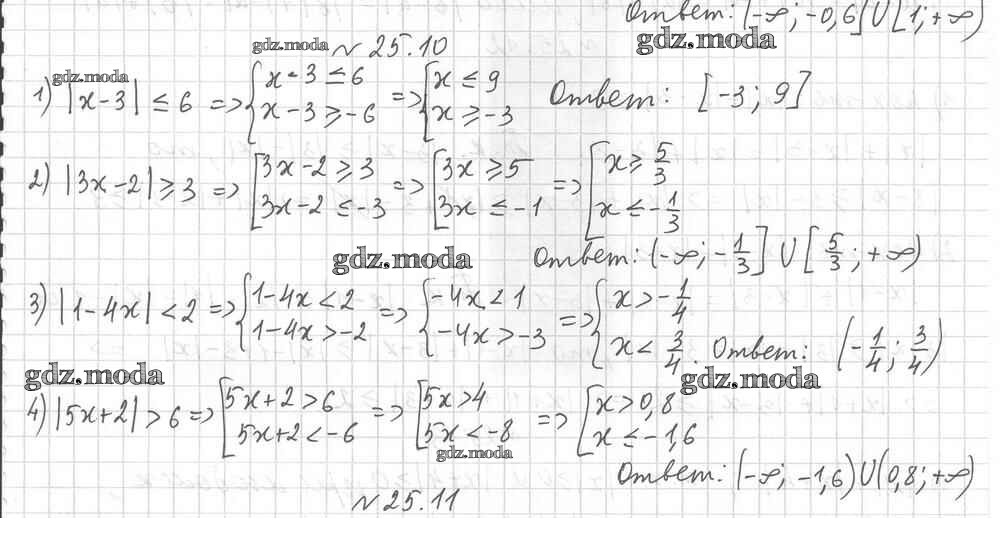 Ответ: (-∞; -0,6] ∪ [1; +∞)
gdz.moda
gdz.moda № 25.10
gdz.moda
1) |x-3| ≤ 6 => { x-3 ≤ 6 x-3 ≥ -6 => { x ≤ 9 x ≥ -3 Ответ: [-3; 9]
2) |3x-2| ≥ 3 => [ 3x-2 ≥ 3 3x-2 ≤ -3 => [ 3x ≥ 5 3x ≤ -1 => [ x ≥ 5/3 x ≤ -1/3
gdz.moda
Ответ: (-∞; -1/3] ∪ [5/3; +∞)
3) |1-4x| < 2 => { 1-4x < 2 1-4x > -2 => { -4x < 1 -4x > -3 => { x > -1/4 x < 3/4. Ответ: (-1/4; 3/4)
gdz.moda
gdz.moda
4) |5x+2| > 6 => [ 5x+2 > 6 5x+2 < -6 => [ 5x > 4 5x < -8 => [ x > 0,8 x ≤ -1,6
gdz.moda
Ответ: (-∞; -1,6) ∪ (0,8; +∞)
№ 25.11